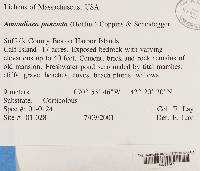 Lichens of Massachusetts, USA
Amandinea punctata (Hoffm.) Coppins & Scheidegger
Suffolk County Boston Harbor Islands
Calf Island. 17 acres. Exposed bedrock with varying
elevations up to 40 feet. Cement, brick, and rock remains of
old mansion. Freshwater pond surrounded by tidal marshes,
cliffs, grave beaches, coves, beach plums, willows
9 meters
Substrate: Corticolous
Spec# 01-0124 Col. E. Lay
Site # 01-028 7/09/2001 Det. E. Lay